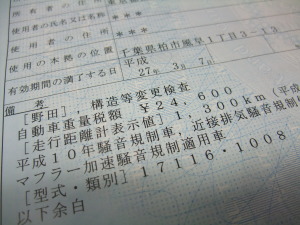 所有者の住所
使用者の氏名又は名称 ＊＊＊
使用者の住所 ＊＊＊
使用の本拠の位置 千葉県柏市風早1丁目3−13
有効期間の満了する日 平成27年 3月 7日
備考
[野田], 構造等変更検査
自動車重量税額 ￥24,600
[走行距離計表示値] 1,300km (平成
平成10年騒音規制車, 近接排気騒音規制
マフラー加速騒音規制適用車
[型式・類別] 17116・1008
以下余白